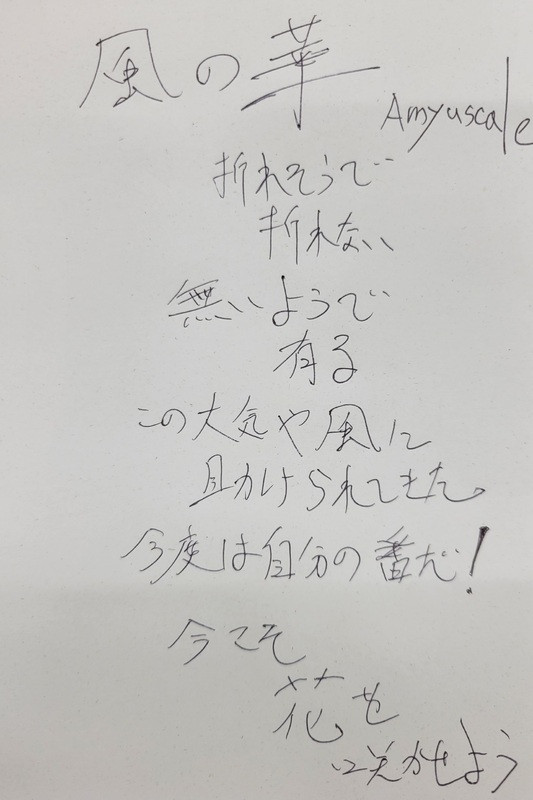 風の華
Amyuscale
折れそうで
折れない
無いようで
有る
この大気や風に
助けられてきた。
今度は自分の番だ!
今こそ
花を
咲かせよう